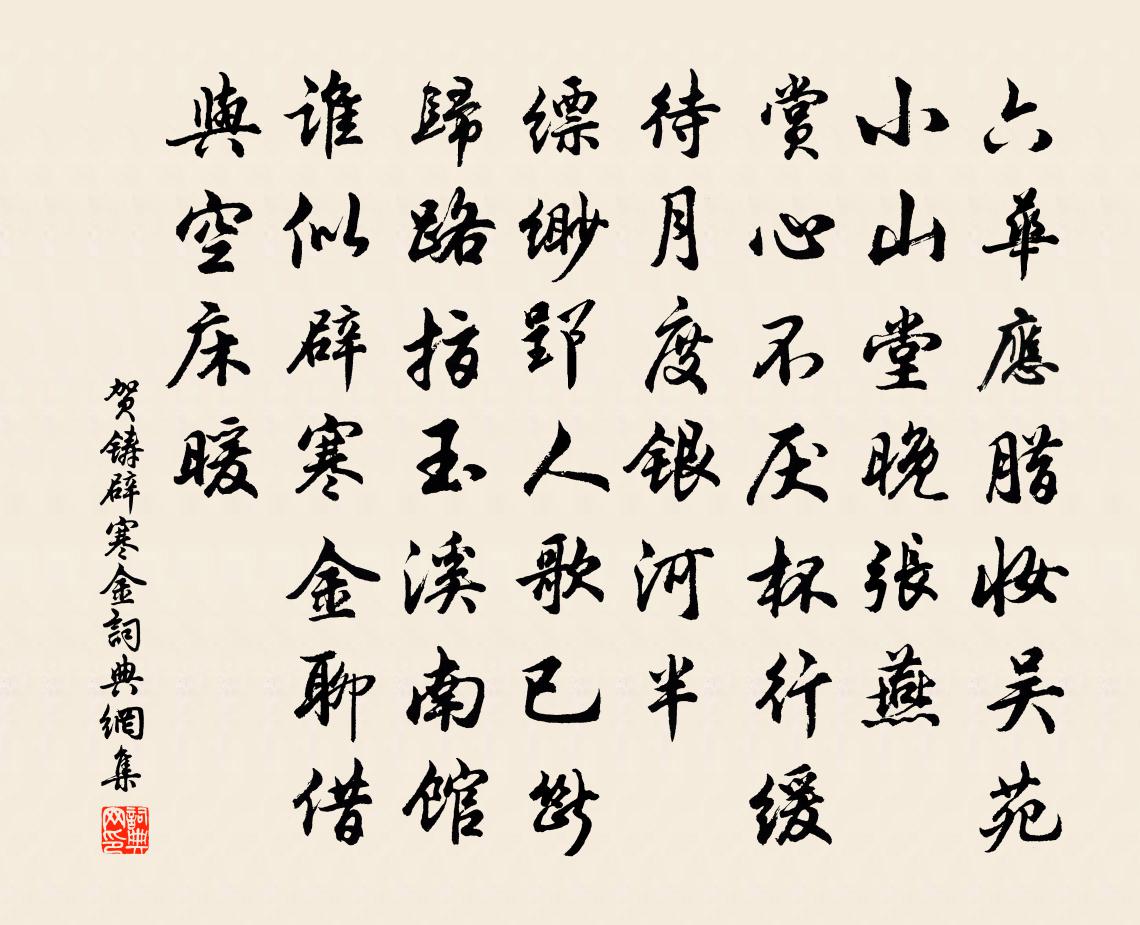 六華應腊妆吴苑
小山堂晚張燕
賞心不厌杯行缓
待月度銀河半
缥缈郢人歌已断
歸路指玉溪南馆
谁似辟寒金聊借
與空床暖
贺铸辟寒金詞典網集
詞典網印